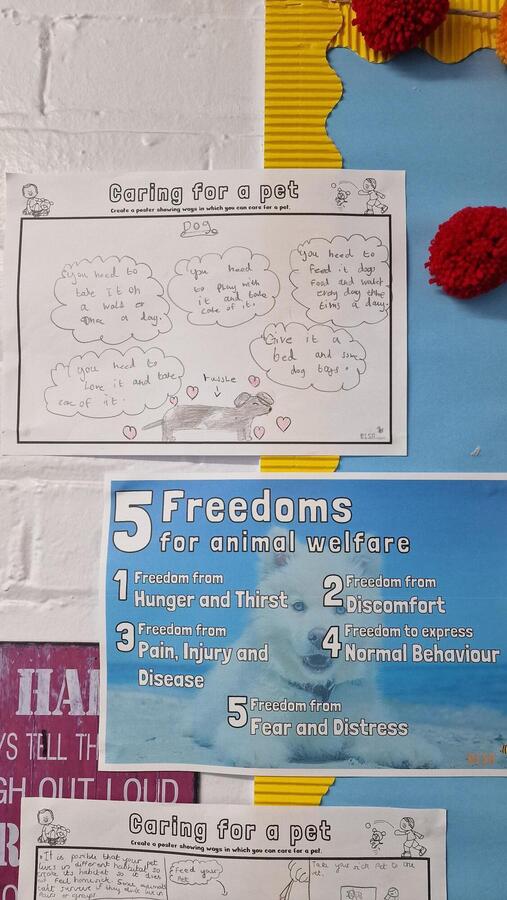 Caring for a pet
Create a poster showing ways in which you can care for a pet.
DOG
you need to
take it on
a walk
once a day.
you need
to play with
it and take
care of it.
you need to
feed it dog
food and water
evrey day thre
tims a day.
you need to
love it and take
care of it.
Give it a
bed and some
dog toys.
russle
ELSA
5 Freedoms
for animal welfare
1 Freedom from
Hunger and Thirst
2 Freedom from
Discomfort
3 Freedom from
Pain, Injury and
Disease
4 Freedom to express
Normal Behaviour
5 Freedom from
Fear and Distress
ELSA
HA
YS TELL TH
GH OUT LOUD
R
Caring for a pet
Create a poster showing ways in which you can care for a pet.
It is posible that your pet
lives in different habitat so
create its habitat so it dies
not feel homesick. Some animals
cant survive if they dont live in
pairs or groups.
Feed your
pet
Take your sick pet to the
vet.